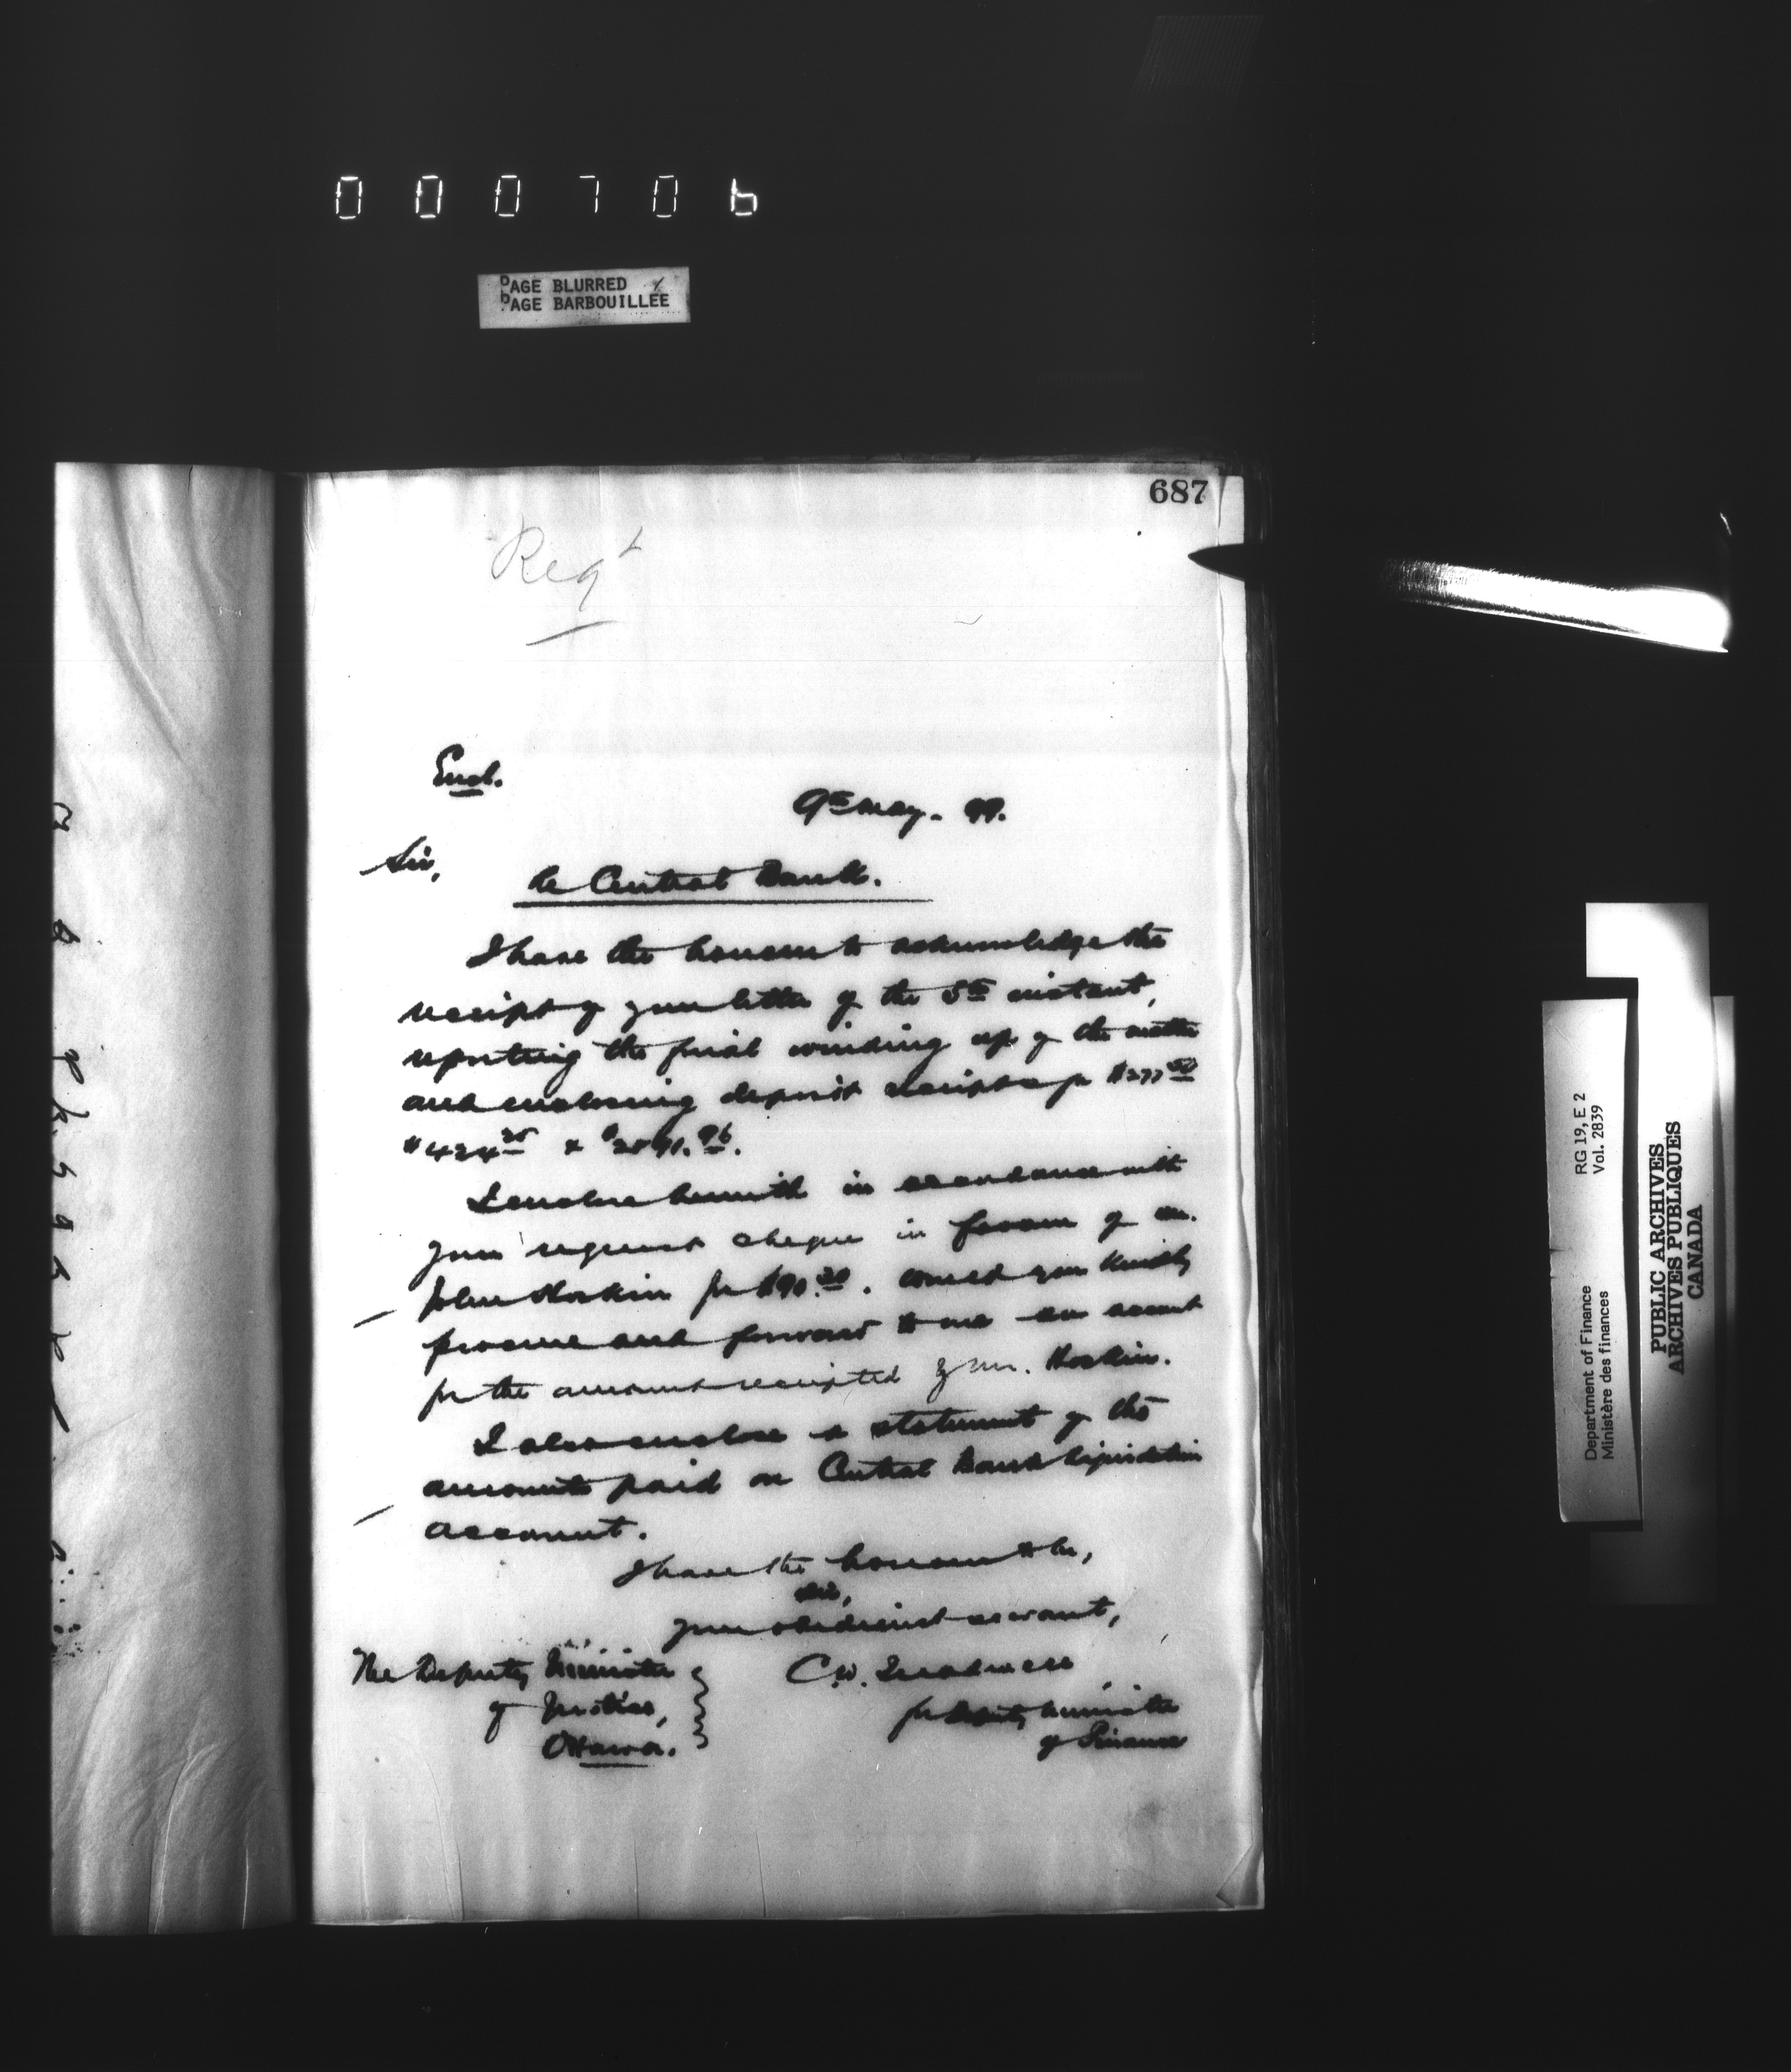 000706
PAGE BLURRED
PAGE BARBOUILLÉE
687
Regd
Encl.
9th May. 99.
Sir,
Re Central Bank.
I have the honour to acknowledge the
receipt of your letter of the 5th instant,
reporting the final winding up of the matter
and enclosing deposit receipts for $277
$424 & $2591.96.
I enclose herewith in accordance with
your request cheque in favour of Mr.
John Hoskin for $90.30. Would you kindly
procure and forward to me an account
for the amount receipted by Mr. Hoskin.
I also enclose a statement of the
amounts paid on Central Bank liquidation
account.
I have the honour to be,
Sir,
Your obedient servant,
C.W. Treadwell
for Deputy Minister
of Finance
The Deputy Minister
of Justice,
Ottawa.
Department of Finance
Ministère des finances
RG 19, E 2
Vol. 2839
PUBLIC ARCHIVES
ARCHIVES PUBLIQUES
CANADA